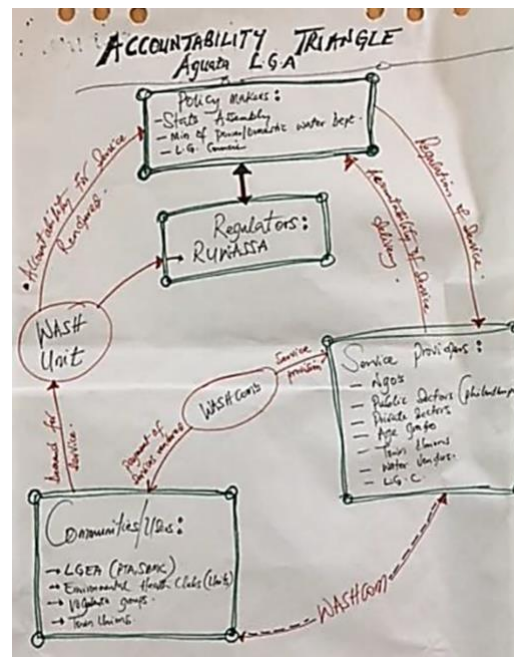 ACCOUNTABILITY TRIANGLE
Aguata L.G.A
Policy Makers:
- State Assembly
- Min of Power/Domestic Water Dept.
- L.G. Council
Accountability for Service
Rendered.
Regulation of Service.
Accountability of Service
delivery
Regulators:
→ RUWASSA
WASH
Unit
Demand for
Service.
WASHComs
Service
provision
Payment of
Service rendered
Service Providers:
- Ngo's
- Public Sectors (philanthrop
- Private Sectors
- Age grate
- Town Unions
- Water Vendors.
- L.G.C.
Communities/Users:
→ LGEA (PTA, SBMC)
→ Environmental Health Clubs (Unit)
→ Vigilante groups.
→ Town Unions
WASHCOM